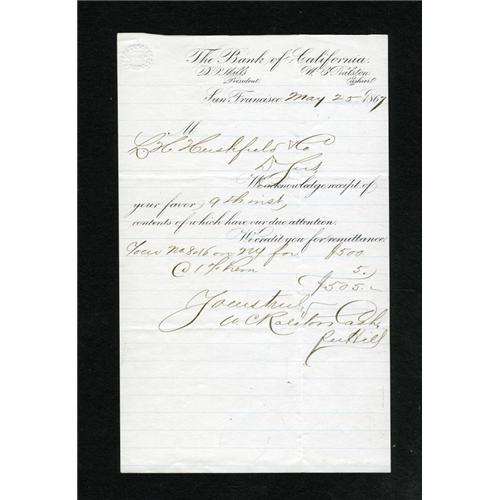 The Bank of California.
D. O. Mills W. C. Ralston
President Cashier
San Francisco May 25 1867
M
L H Hershfield & Co
D Sirs
We acknowledge receipt of
your favor 9th inst,
contents of which have our due attention.
We credit you for remittance.
Your No 8016 on NY for $500
@ 1 % Prem 5.
$505.
Yours truly
W C Ralston Cash
per Hill